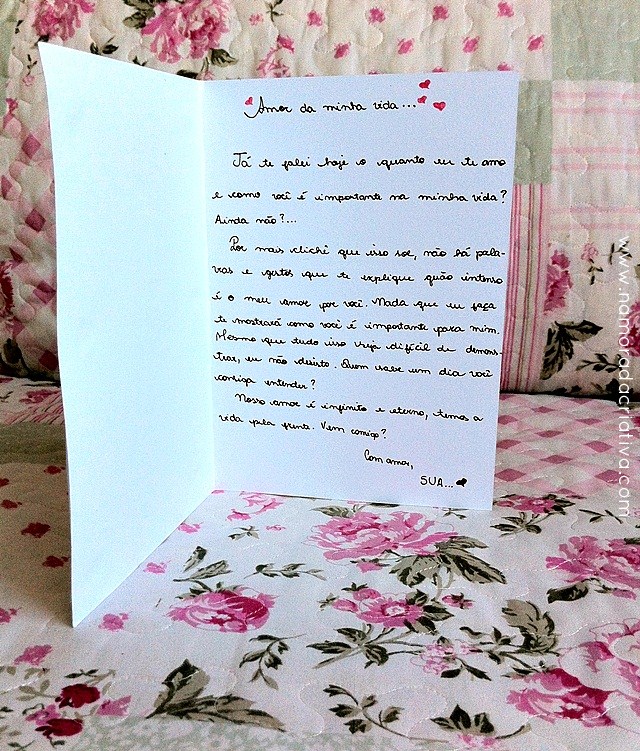 Amor da minha vida...
Já te falei hoje o quanto eu te amo
e como você é importante na minha vida?
Ainda não?...
Por mais clichê que isso soe, não há pala-
vras e gestos que te explique quão intenso
é o meu amor por você. Nada que eu faça
te mostrará como você é importante para mim.
Mesmo que tudo isso seja difícil de demons-
trar, eu não desisto. Quem sabe um dia você
consiga entender?
Nosso amor é infinito e eterno, temos a
vida pela frente. Vem comigo?
Com amor,
SUA...
www.namoradacriativa.com